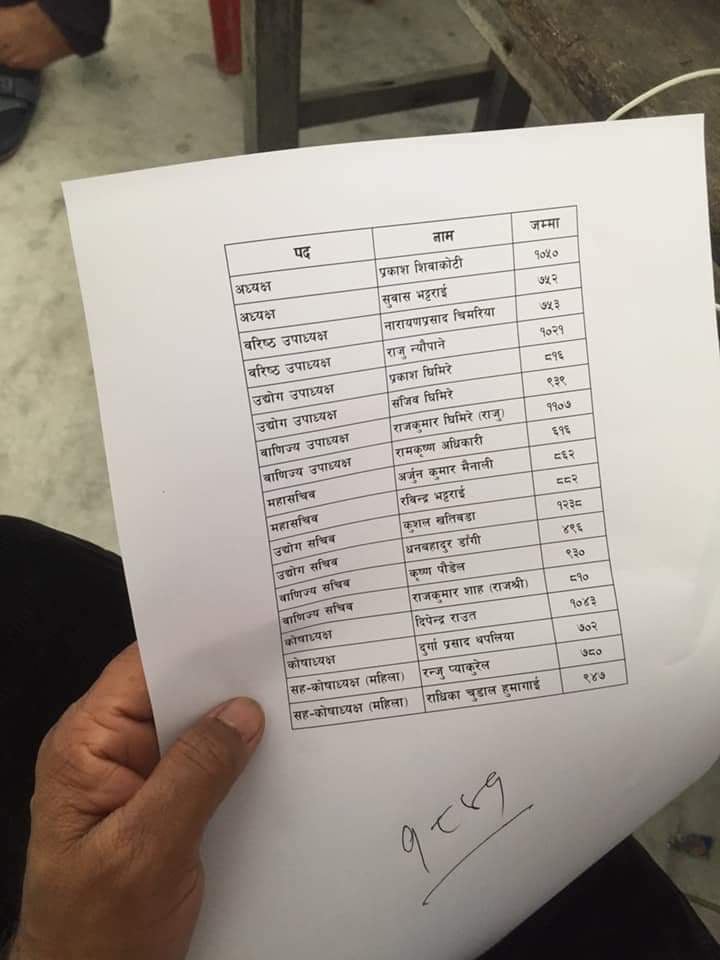 पद नाम जम्मा
अध्यक्ष प्रकाश शिवाकोटी १०५०
अध्यक्ष सुवास भट्टराई ७५२
वरिष्ठ उपाध्यक्ष नारायणप्रसाद चिमरिया ७५३
वरिष्ठ उपाध्यक्ष राजु न्यौपाने १०२१
उद्योग उपाध्यक्ष प्रकाश घिमिरे ८१६
उद्योग उपाध्यक्ष संजिव घिमिरे ९३९
वाणिज्य उपाध्यक्ष राजकुमार घिमिरे (राजु) ११०७
वाणिज्य उपाध्यक्ष रामकृष्ण अधिकारी ६१६
महासचिव अर्जुन कुमार मैनाली ८६२
महासचिव रविन्द्र भट्टराई ८८२
उद्योग सचिव कुशल खतिवडा १२३८
उद्योग सचिव धनबहादुर डाँगी ४९६
वाणिज्य सचिव कृष्ण पौडेल ९३०
वाणिज्य सचिव राजकुमार शाह (राजश्री) ८१०
कोषाध्यक्ष दिपेन्द्र राउत १०४३
कोषाध्यक्ष दुर्गा प्रसाद थपलिया ७०२
सह-कोषाध्यक्ष (महिला) रन्जु प्याकुरेल ७८०
सह-कोषाध्यक्ष (महिला) राधिका चुडाल हुमागाई ९४७
१८४१